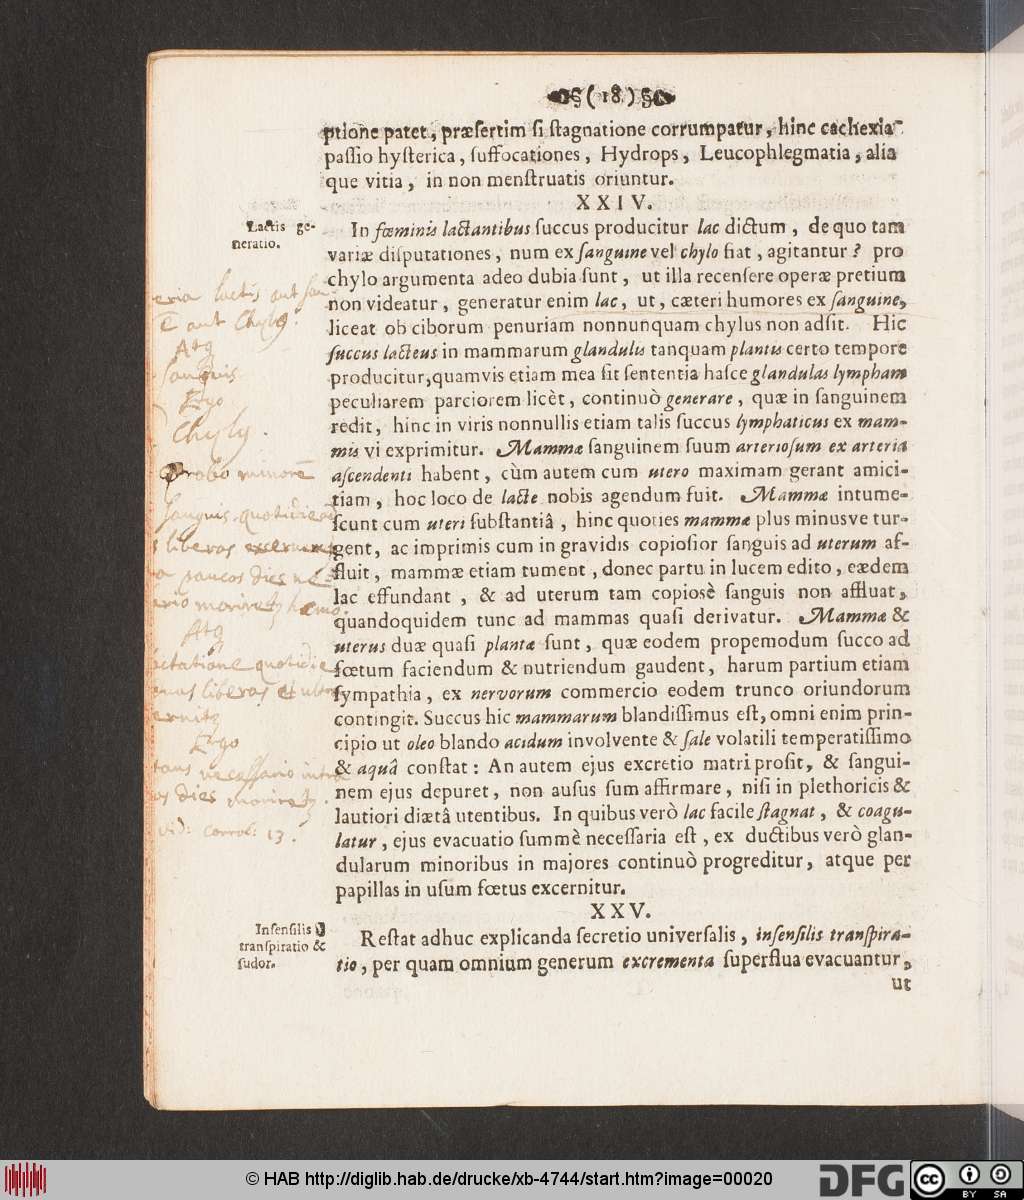 (18)
ptione patet, præſertim ſi ſtagnatione corrumpatur, hinc cachexia
paſſio hyſterica, ſuffocationes, Hydrops, Leucophlegmatia, alia
que vitia, in non menſtruatis oriuntur.
XXIV.
Lactis ge-
neratio.
In fœminis lactantibus ſuccus producitur lac dictum, de quo tam
variæ diſputationes, num ex ſanguine vel chylo fiat, agitantur? pro
chylo argumenta adeo dubia ſunt, ut illa recenſere operæ pretium
non videatur, generatur enim lac, ut, cæteri humores ex ſanguine,
liceat ob ciborum penuriam nonnunquam chylus non adſit. Hic
ſuccus lacteus in mammarum glandulis tanquam plantis certo tempore
producitur, quamvis etiam mea ſit ſententia haſce glandulas lympham
peculiarem parciorem licèt, continuò generare, quæ in ſanguinem
redit, hinc in viris nonnullis etiam talis ſuccus lymphaticus ex mam-
mis vi exprimitur. Mammæ ſanguinem ſuum arterioſum ex arteria
aſcendenti habent, cùm autem cum utero maximam gerant amici-
tiam, hoc loco de lacte nobis agendum fuit. Mammæ intume-
ſcunt cum uteri ſubſtantiâ, hinc quoties mammæ plus minusve tur-
gent, ac imprimis cum in gravidis copioſior ſanguis ad uterum af-
fluit, mammæ etiam tument, donec partu in lucem edito, eædem
lac effundant, & ad uterum tam copiosè ſanguis non affluat,
quandoquidem tunc ad mammas quaſi derivatur. Mammæ &
uterus duæ quaſi plantæ ſunt, quæ eodem propemodum ſucco ad
fœtum faciendum & nutriendum gaudent, harum partium etiam
ſympathia, ex nervorum commercio eodem trunco oriundorum
contingit. Succus hic mammarum blandiſſimus eſt, omni enim prin-
cipio ut oleo blando acidum involvente & ſale volatili temperatiſſimo
& aquâ conſtat: An autem ejus excretio matri proſit, & ſangui-
nem ejus depuret, non auſus ſum affirmare, niſi in plethoricis &
lautiori diætâ utentibus. In quibus verò lac facile ſtagnat, & coagu-
latur, ejus evacuatio ſummè neceſſaria eſt, ex ductibus verò glan-
dularum minoribus in majores continuò progreditur, atque per
papillas in uſum fœtus excernitur.
XXV.
Inſenſilis
tranſpiratio &
ſudor.
Reſtat adhuc explicanda ſecretio univerſalis, inſenſilis tranſpira-
tio, per quam omnium generum excrementa ſuperflua evacuantur,
ut
lactis aut
aut Chylꝰ
Atq
ſanguis
Ergo
Chylꝰ.
Probo minorē
ſanguis quotidie
liberas
paucos dies
Atq
quotidie
liberas et ultra
Ergo
neceſſario intra
dies
vid: Corrol: 13.
© HAB http://diglib.hab.de/drucke/xb-4744/start.htm?image=00020
DFG
cc
BY
SA